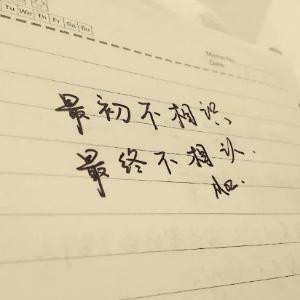 Tu We Th Fr Sa Su
Memo No.
Date
最初不相识、
最终不相认.